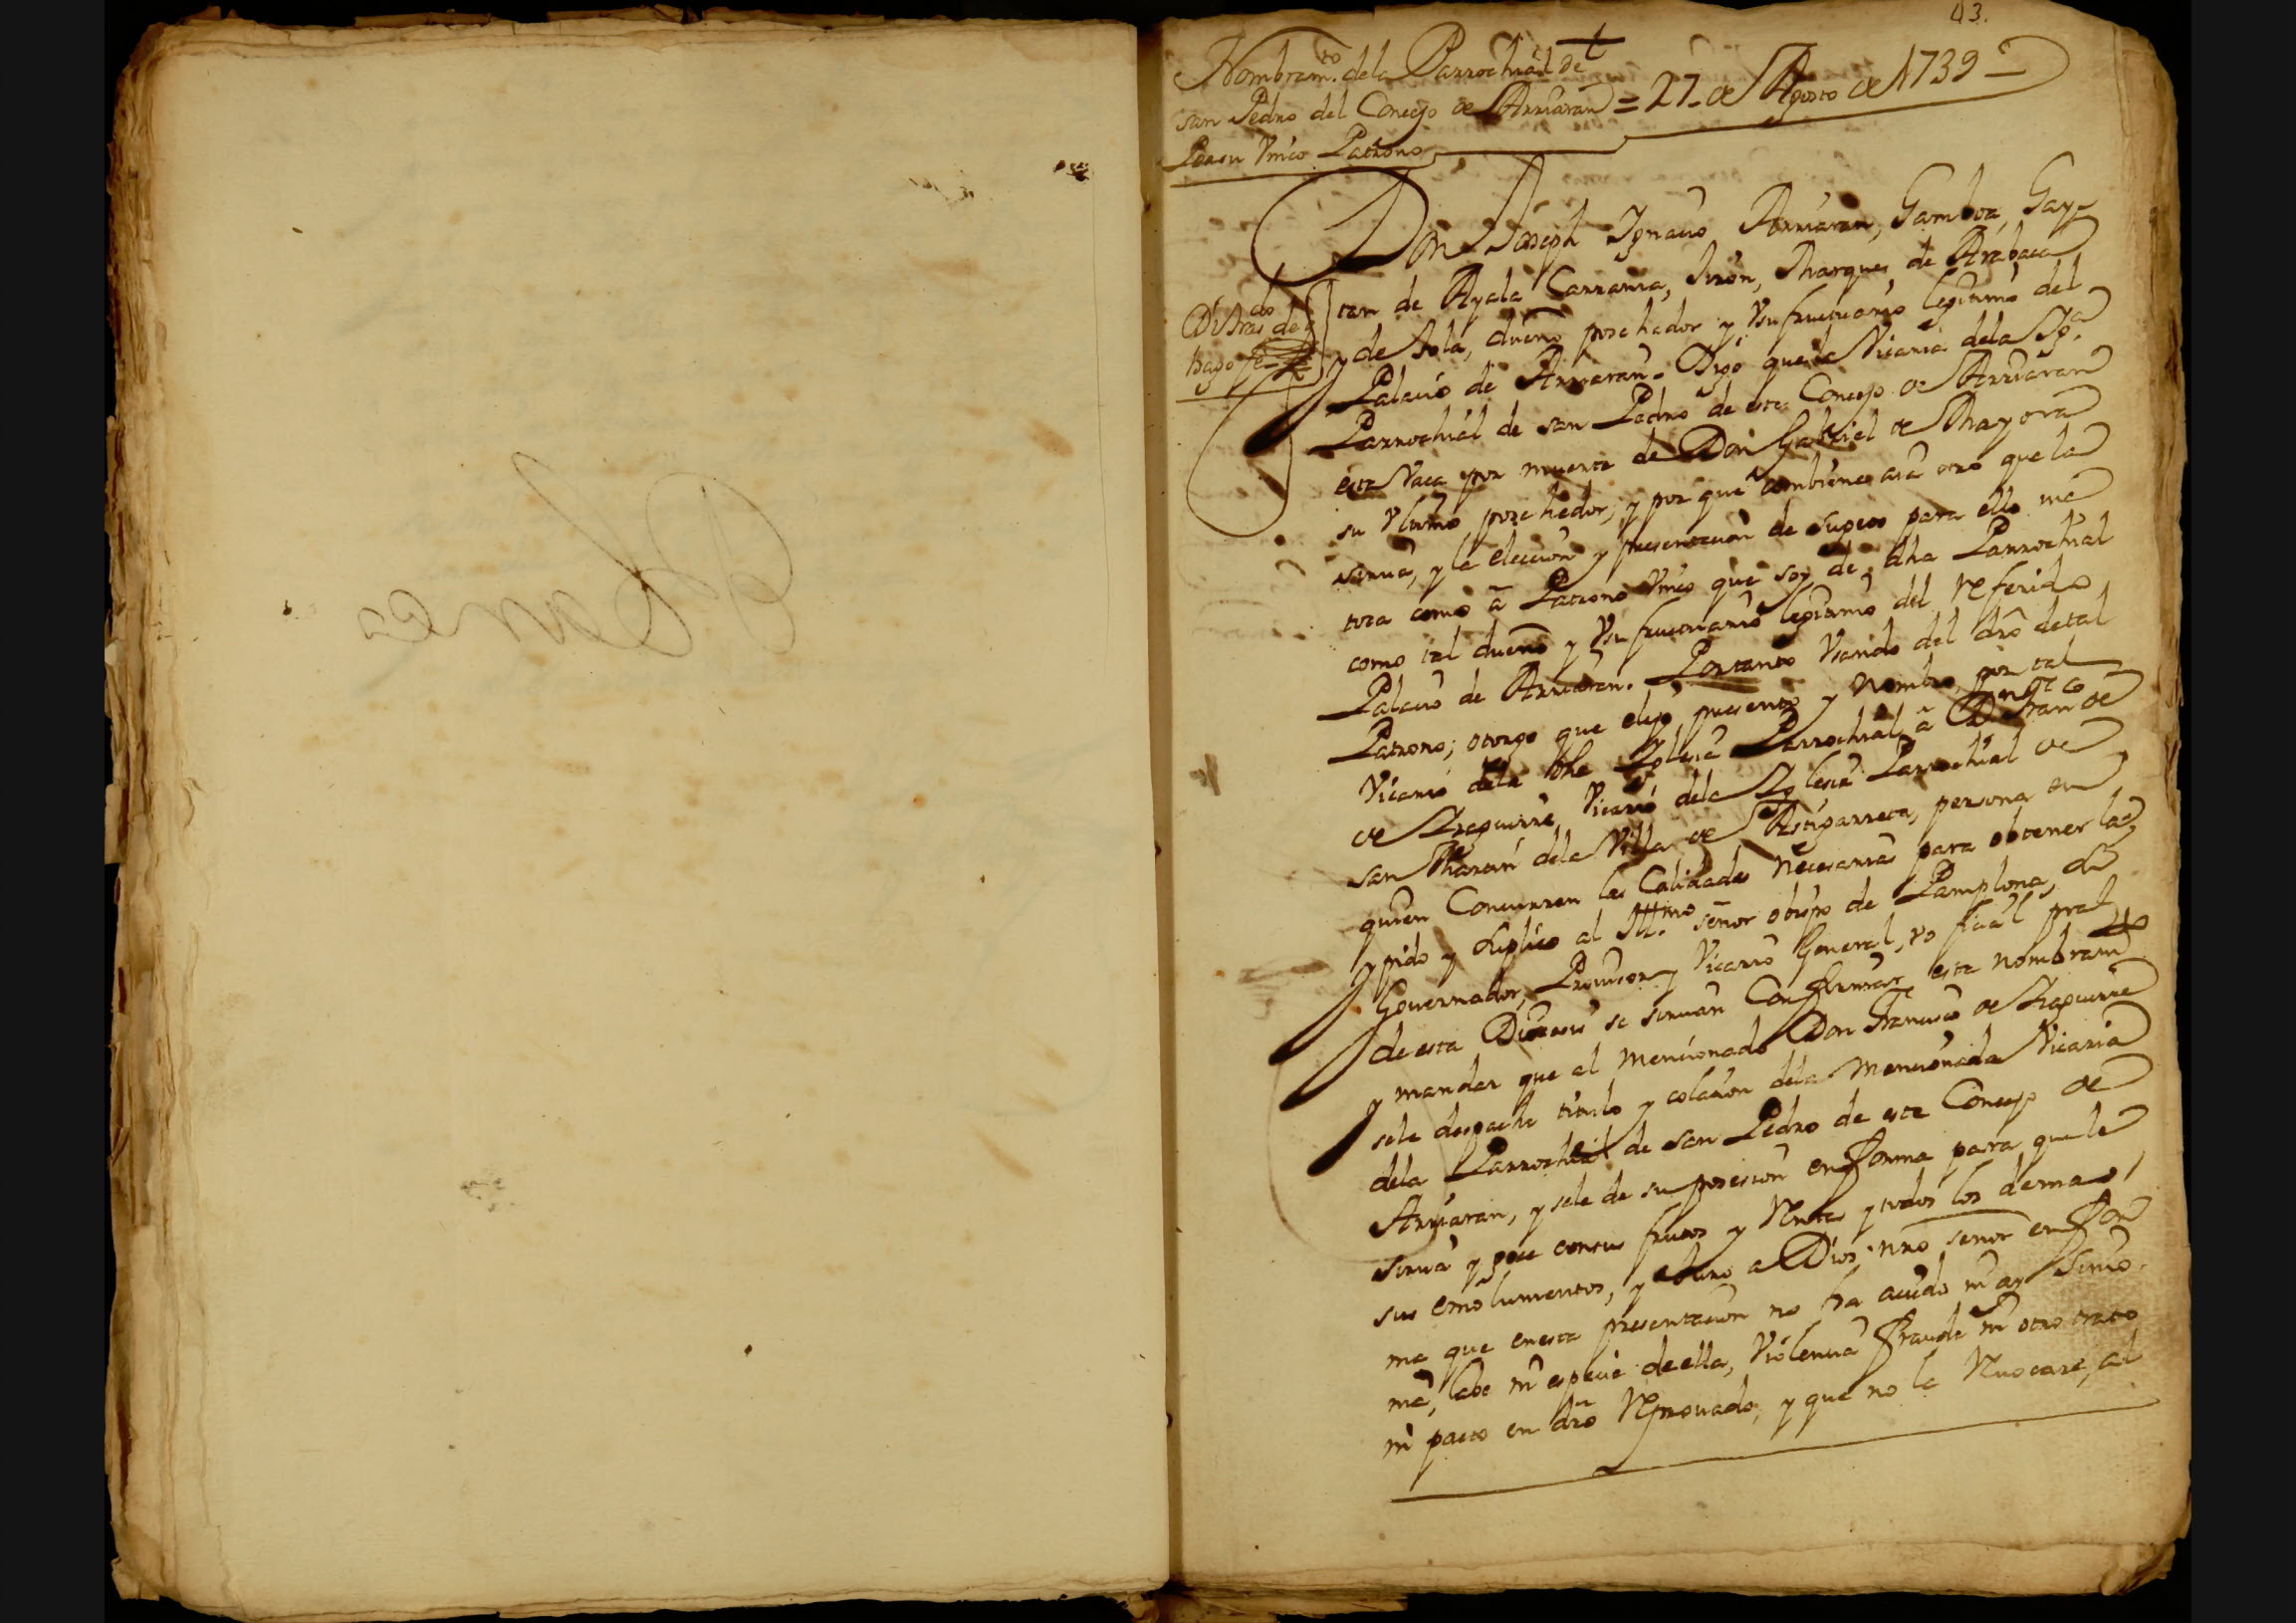 43.
Nombram.to dela Parrochial de
san Pedro del Concejo de Arriaran = 27 de Agosto de 1739
Por su Vnico Patrono
Don Joseph Ignacio Arriaran, Gamboa, Gay-
tan de Ayala Larraria, Jiron, Marques, de Arabaca
y de Sola, dueño posehedor y Vsufructuario legitimo del
dos
hago fe
Palacio de Arriaran. Digo que la Vicaria dela Yg.a
Parrochial de san Pedro de este Concejo de Arriaran
esta Vaca por muerte de Don Gabriel de Mayora
su Vltimo posehedor; y por que combiene aia otro que la
sirua, y la eleccion y presentacion de sugeto para ello me
toca como à Patrono Vnico que soy de dha Parrochial
como tal dueño y Vsufructuario legitimo del referido
Palacio de Arriaran. Portanto Vsando del dro de tal
Patrono; otorgo que elijo, presento y nombro por tal
Vicario dela dha Yglesia Parrochial à Dn Fran.co de
de Yraguirre Vicario dela Yglesia Parrochial de
san Martin dela Villa de Astigarreta, persona en
quien Concurren las Calidades necesarias para obtener la,
y pido y suplico al Ill.mo señor obispo de Pamplona, su
Gouernador, Prouisor y Vicario General, v oficial pral
de esta Diocesis se siruan Confirmar este nombram.to
y mandar que al mencionado Don Francisco de Yraguirre
se le despache titulo y colacion dela mencionada Vicaria
dela Parrochial de san Pedro de este Concejo de
Arriaran, y sele de su posesion en forma para que le
sirua y goce con sus frutos y rentas y todos los demas,
sus emolumentos, y Juro a Dios nro señor en for
ma que en esta presentacion no ha auido ni ay simo-
nia, labe ni especie de ella, Violencia fraude ni otro trato
ni pacto en dro reprouado, y que no la reuocare, al